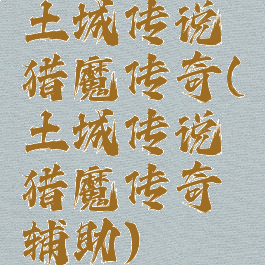 土城传说
猎魔传奇(
土城传说
猎魔传奇
辅助)